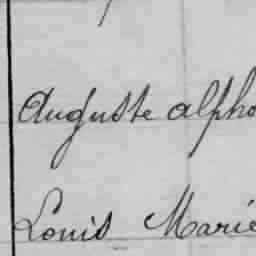 Auguste alpho
Louis Marie